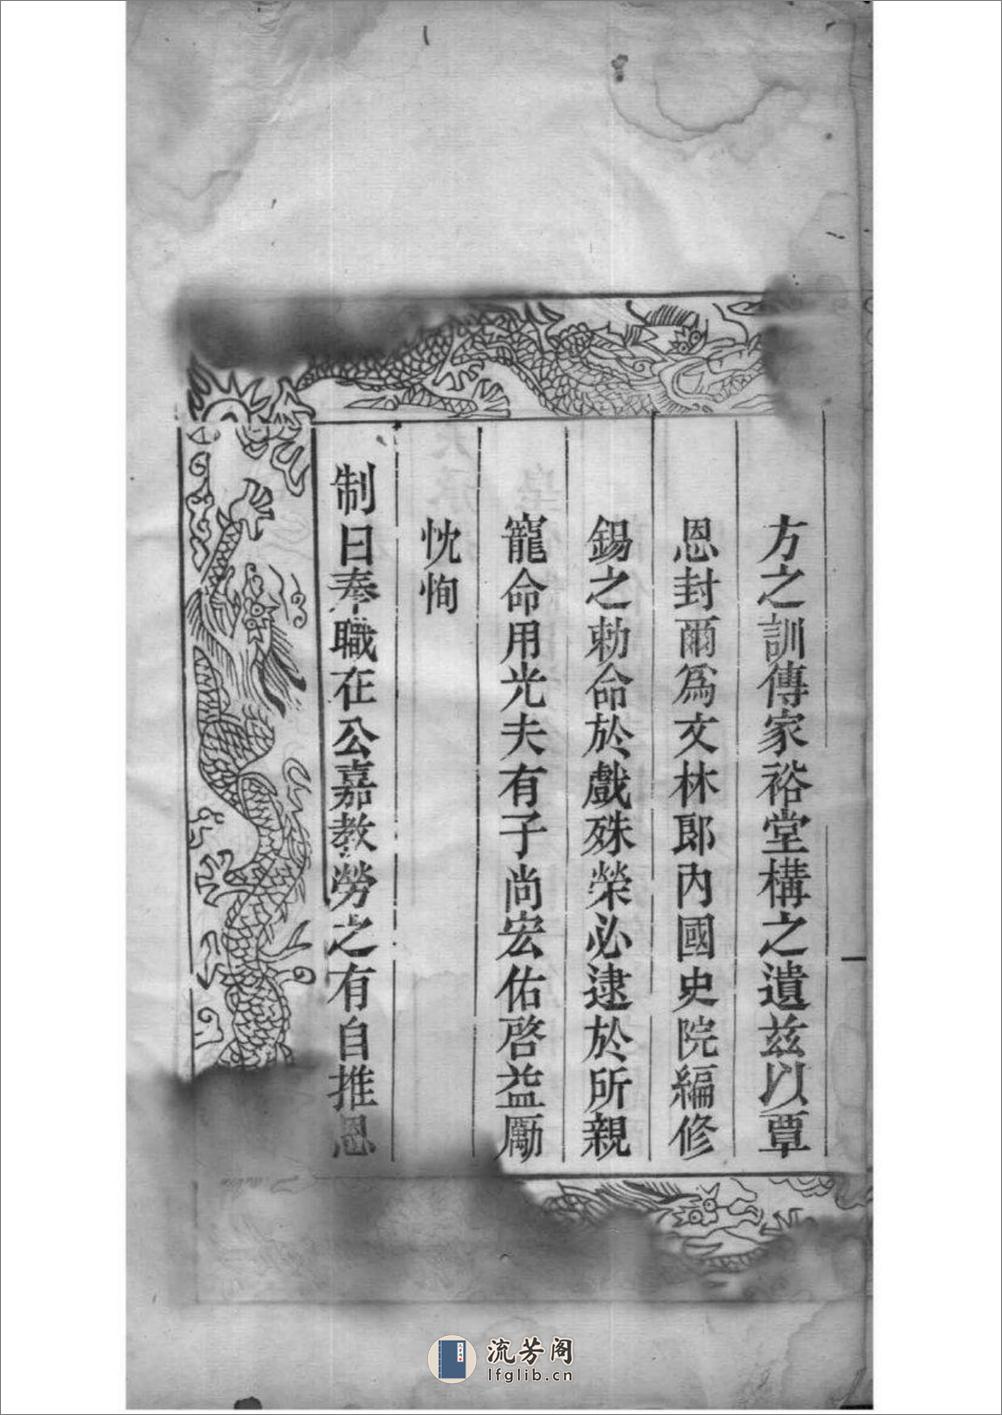 方之訓傳家裕堂構之遺兹以覃
恩封爾爲文林郎内國史院編修
錫之勅命於戲殊榮必逮於所親
寵命用光夫有子尚宏佑啓益勵
忱恂
制曰奉職在公嘉教勞之有自推恩
流芳阁
lfglib.cn